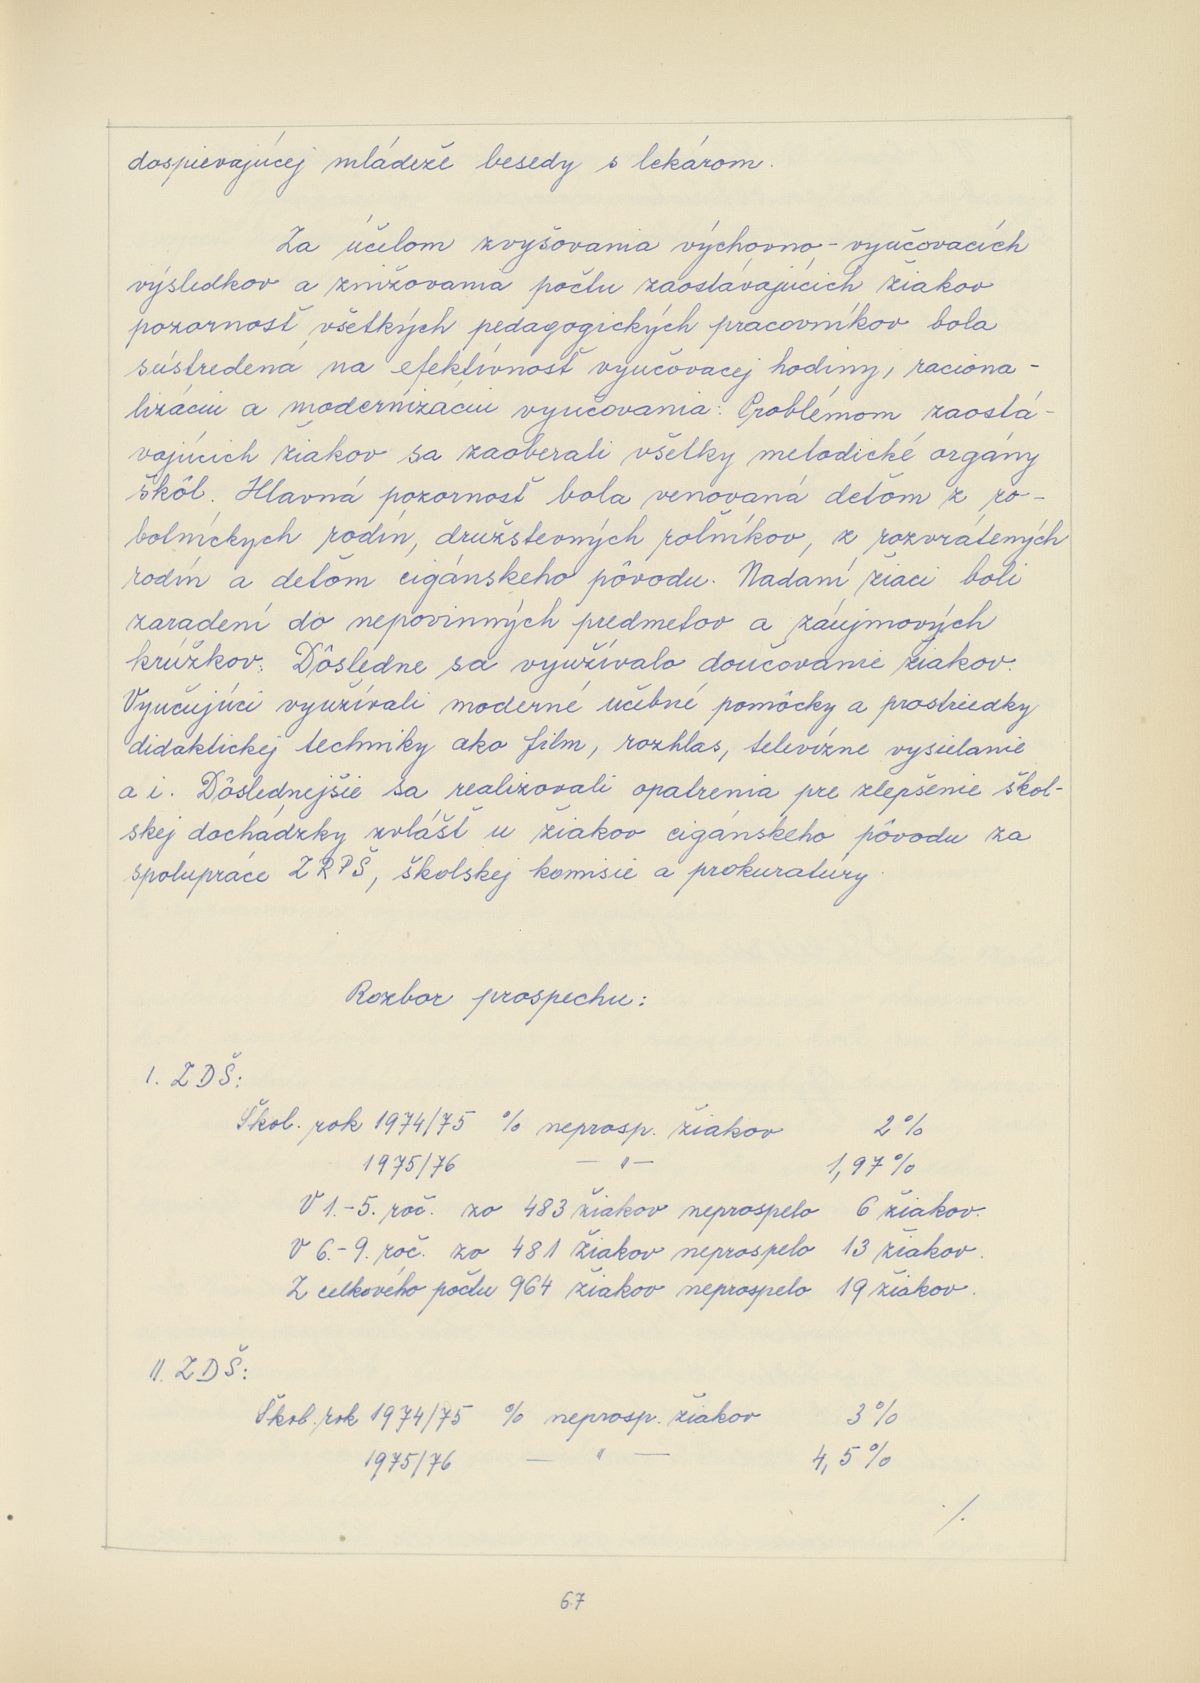 dospievajúcej mládeže besedy s lekárom.
Za účelom zvyšovania výchovno-vyučovacích
výsledkov a znižovania počtu zaostávajúcich žiakov
pozornosť všetkých pedagogických pracovníkov bola
sústredená na efektívnosť vyučovacej hodiny, raciona-
lizáciu a modernizáciu vyučovania. Problémom zaostá-
vajúcich žiakov sa zaoberali všetky metodické orgány
škôl. Hlavná pozornosť bola venovaná deťom z ro-
botníckych rodín, družstevných roľníkov, z rozvrátených
rodín a deťom cigánskeho pôvodu. Nadaní žiaci boli
zaradení do nepovinných predmetov a záujmových
krúžkov. Dôsledne sa využívalo doučovanie žiakov.
Vyučujúci využívali moderné učebné pomôcky a prostriedky
didaktickej techniky ako film, rozhlas, televízne vysielanie
a i. Dôslednejšie sa realizovali opatrenia pre zlepšenie škol-
skej dochádzky zvlášť u žiakov cigánskeho pôvodu za
spolupráce ZRPŠ, školskej komisie a prokuratúry.
Rozbor prospechu:
I. ZDŠ:
Škol. rok 1974/75 % neprosp. žiakov 2%
1975/76 — " — 1,97%
V 1.-5. roč. zo 483 žiakov neprospelo 6 žiakov.
V 6.-9. roč. zo 481 žiakov neprospelo 13 žiakov.
Z celkového počtu 964 žiakov neprospelo 19 žiakov.
II. ZDŠ:
Škol. rok 1974/75 % neprosp. žiakov 3%
1975/76 — " — 4,5%
./.
67